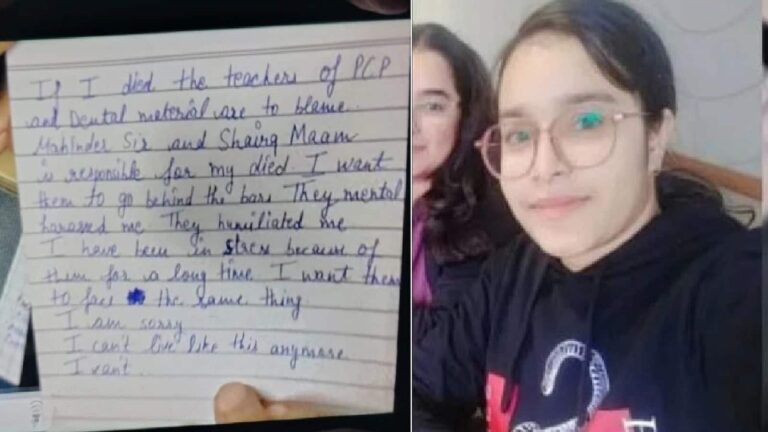 If I died the teachers of PCP
and Dental material are to blame.
Mahinder Sir and Shairg Maam
is responsible for my died I want
them to go behind the bars They mental
harassed me They humiliated me
I have been in stress because of
them for a long time I want them
to face the same thing
I am sorry
I can't live like this anymore
I can't.